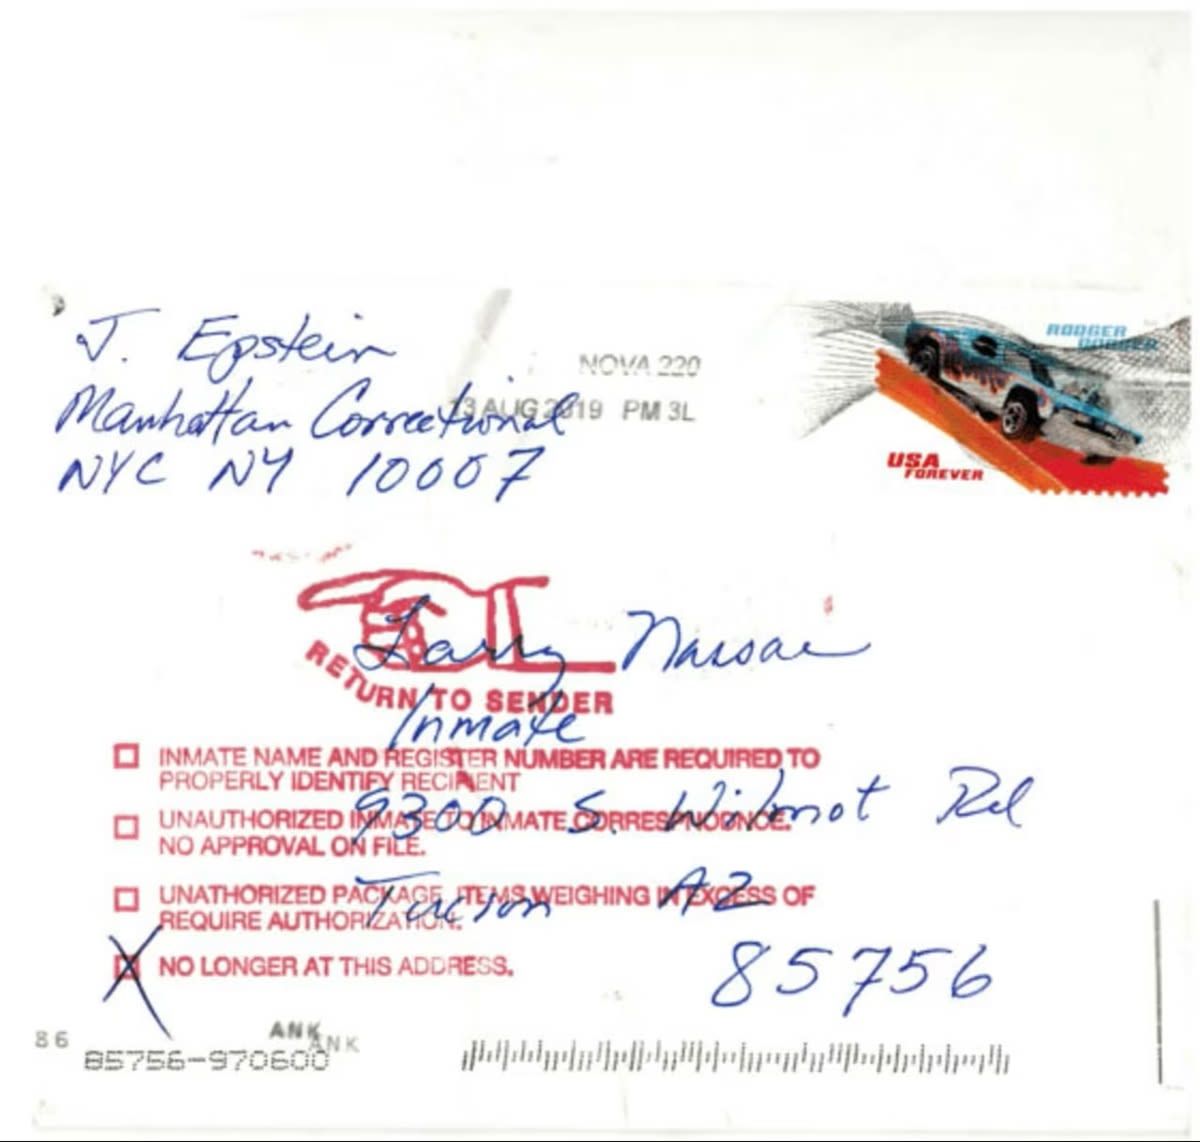 J. Epstein
Manhattan Correctional
NYC NY 10007
NOVA 220
13 AUG 2019 PM 3L
RODGER
DODGER
USA
FOREVER
RETURN TO SENDER
Larry Nassar
Inmate
9300 S. Wilmot Rd
Tucson AZ
85756
INMATE NAME AND REGISTER NUMBER ARE REQUIRED TO
PROPERLY IDENTIFY RECIPIENT
UNAUTHORIZED INMATE TO INMATE CORRESPONDNCE.
NO APPROVAL ON FILE.
UNATHORIZED PACKAGE, ITEMS WEIGHING IN EXCESS OF
REQUIRE AUTHORIZATION.
X NO LONGER AT THIS ADDRESS.
86
ANK
ANK
85756-970600